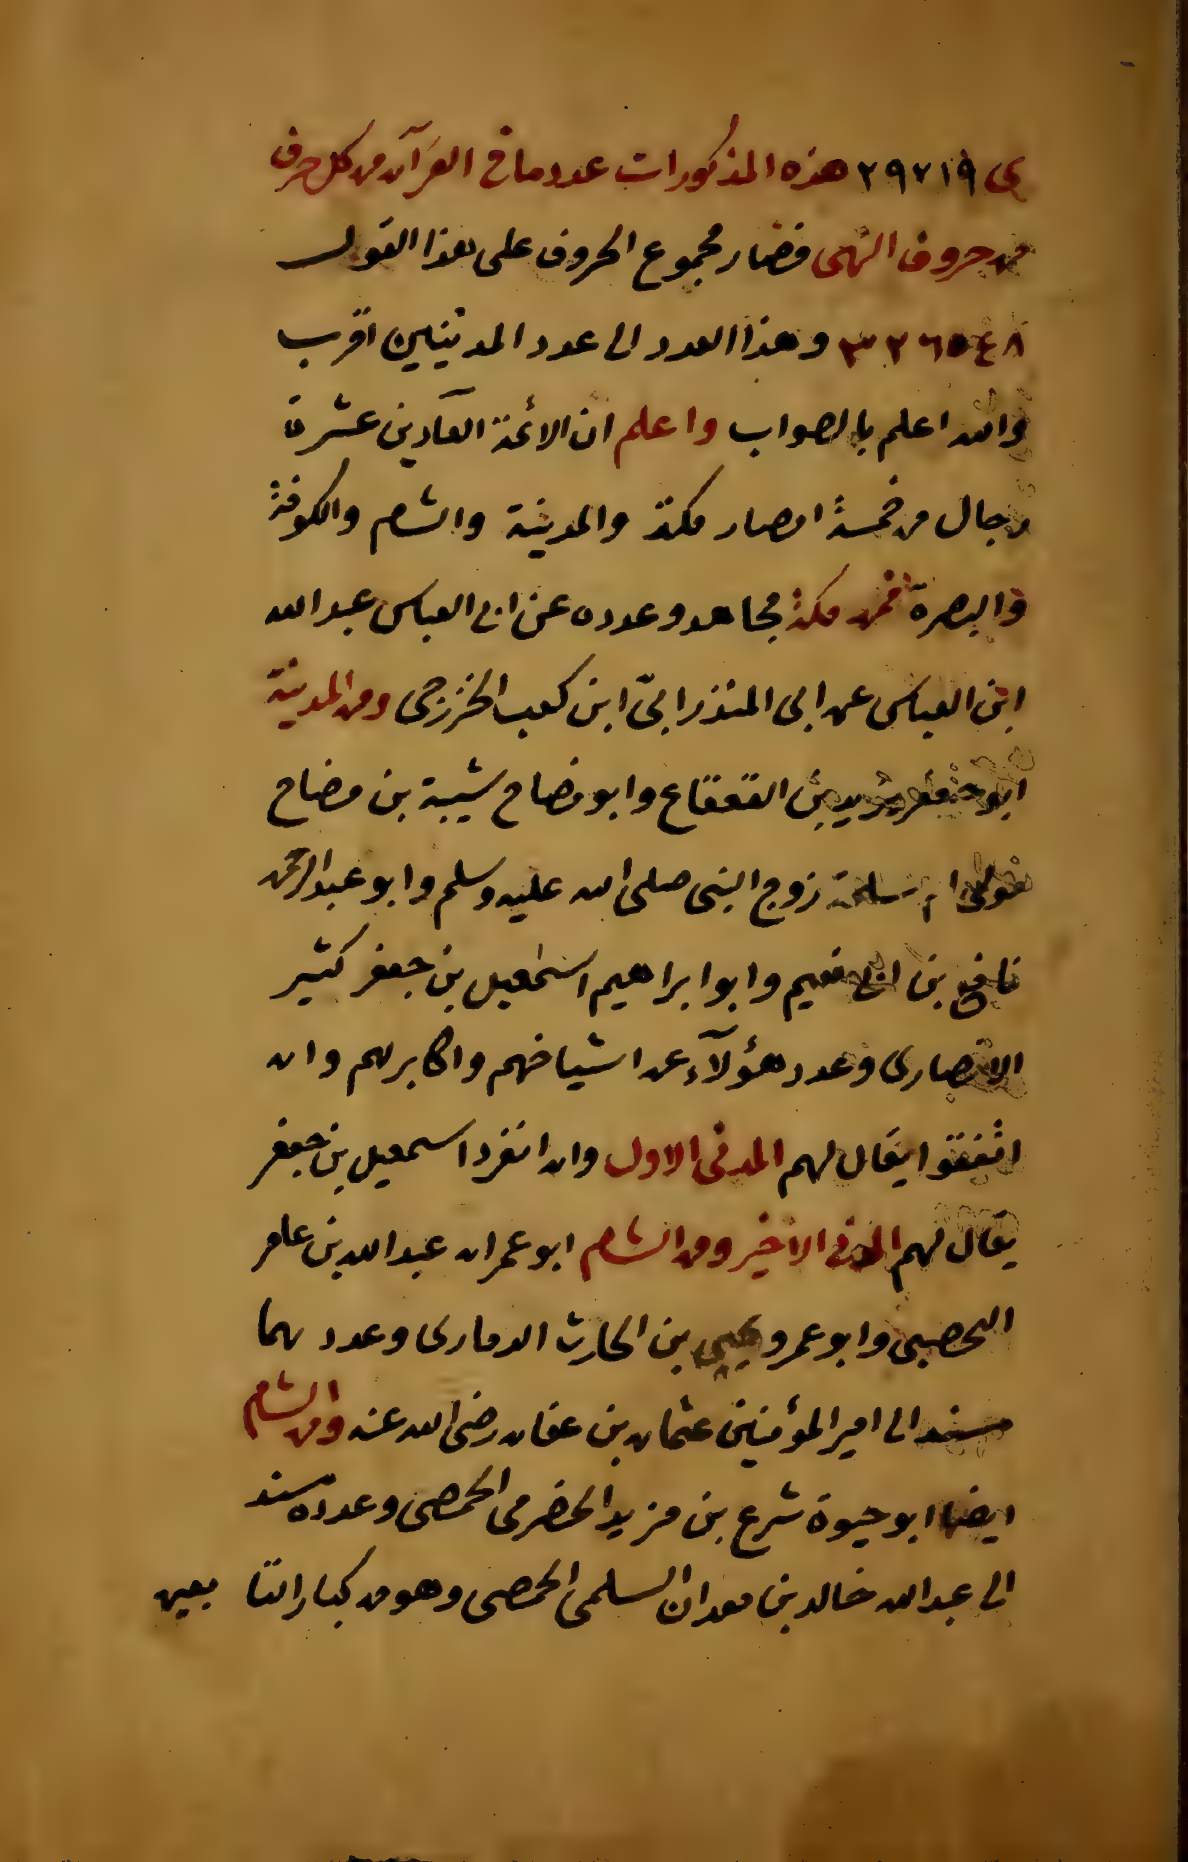 ى ٢٩٧١٩ هذه المذكورات عدد ما فى القرآن من كل حرف
من حروف التهجى فصار مجموع الحروف على هذا القول
٣٢٦٥٤٨ وهذا العدد الى عدد المدنيين اقرب
والله اعلم بالصواب واعلم ان الائمة العادين عشرة
رجال من خمسة امصار مكة والمدينة والشام والكوفة
والبصرة فمن مكة مجاهد وعدده عن ابى العباس عبد الله
ابن العباس عن ابى المنذر ابىّ ابن كعب الخزرجى ومن المدينة
ابو جعفر يزيد بن القعقاع وابو نضاح شيبة بن مضاح
مولى ام سلمة زوج النبى صلى الله عليه وسلم وابو عبد الرحمن
نافع بن ابى نعيم وابو ابراهيم اسمعيل بن جعفر كثير
الانصارى وعدد هؤلآء عن اشياخهم واكابرهم وان
اتفقوا يقال لهم المدنى الاول وان انفرد اسمعيل بن جعفر
يقال لهم المدنى الاخير ومن الشام ابو عمران عبد الله بن عامر
اليحصبى وابو عمرو يحيى بن الحارث الدمارى وعددهما
مسند الى امير المؤمنين عثمان بن عفان رضى الله عنه ومن الشام
ايضا ابو حيوة شرع بن مزيد الحضرمى الحمصى وعدده مسند
الى عبد الله خالد بن معدان السلمى الحمصى وهو من كبار التا بعين